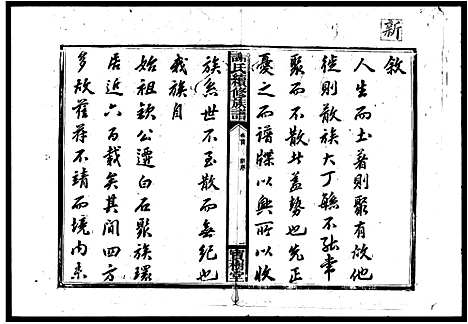 新
敘
人生而土著則聚有故他
徙則散族大丁繇不能常
聚而不散此蓋勢也先正
憂之而譜牒以興所以收
氏續修族譜
卷首
寶樹堂
族系世不至散而無紀也
我族自
始祖欽公遷白石聚族環
居近六百載矣其間四方
多故萑苻不靖而境内未